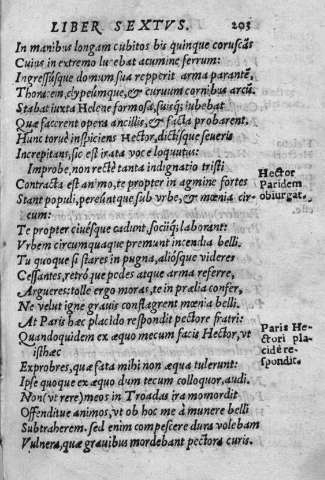 LIBER SEXTVS. 203
In manibus longam cubitos bis quinque coruscãs
Cuius in extremo lucebat acumine ferrum:
Ingressusque domum sua repperit arma parantẽ,
Thoracem, clypeumque, & curuum cornibus arcũ.
Stabat iuxta Helene formosa, suisq; iubebat
Quæ facerent opera ancillis, & facta probarent.
Hunc toruè inspiciens Hector, dictisque seueris
Increpitans, sic est irata voce loquutus:
Improbe, non rectè tanta indignatio tristi
Contracta est animo, te propter in agmine fortes
Stant populi, pereuntque sub vrbe, & mœnia cir-
cum:
Te propter ciuésque cadunt, sociíq; laborant:
Vrbem circumquaque premunt incendia belli.
Tu quoque si stares in pugna, aliósque videres
Cessantes, retró que pedes atque arma referre,
Argueres: tolle ergo moras, te in prælia confer,
Ne velut igne grauis conflagrent mœnia belli.
At Paris hæc placido respondit pectore fratri:
Quandoquidem ex æquo mecum facis Hector, vt
isthæc
Exprobres, quæ fata mihi non æqua tulerunt:
Ipse quoque ex æquo dum tecum colloquor, audi.
Non (vt rere) meos in Troadas ira momordit
Offenditue animos, vt ob hoc me à munere belli
Subtraherem. sed enim compescere dura volebam
Vulnera, quæ grauibus mordebant pectora curis.
Hector
Paridem
obiurgat.
Paris He-
ctori pla-
cidè re-
spondit.